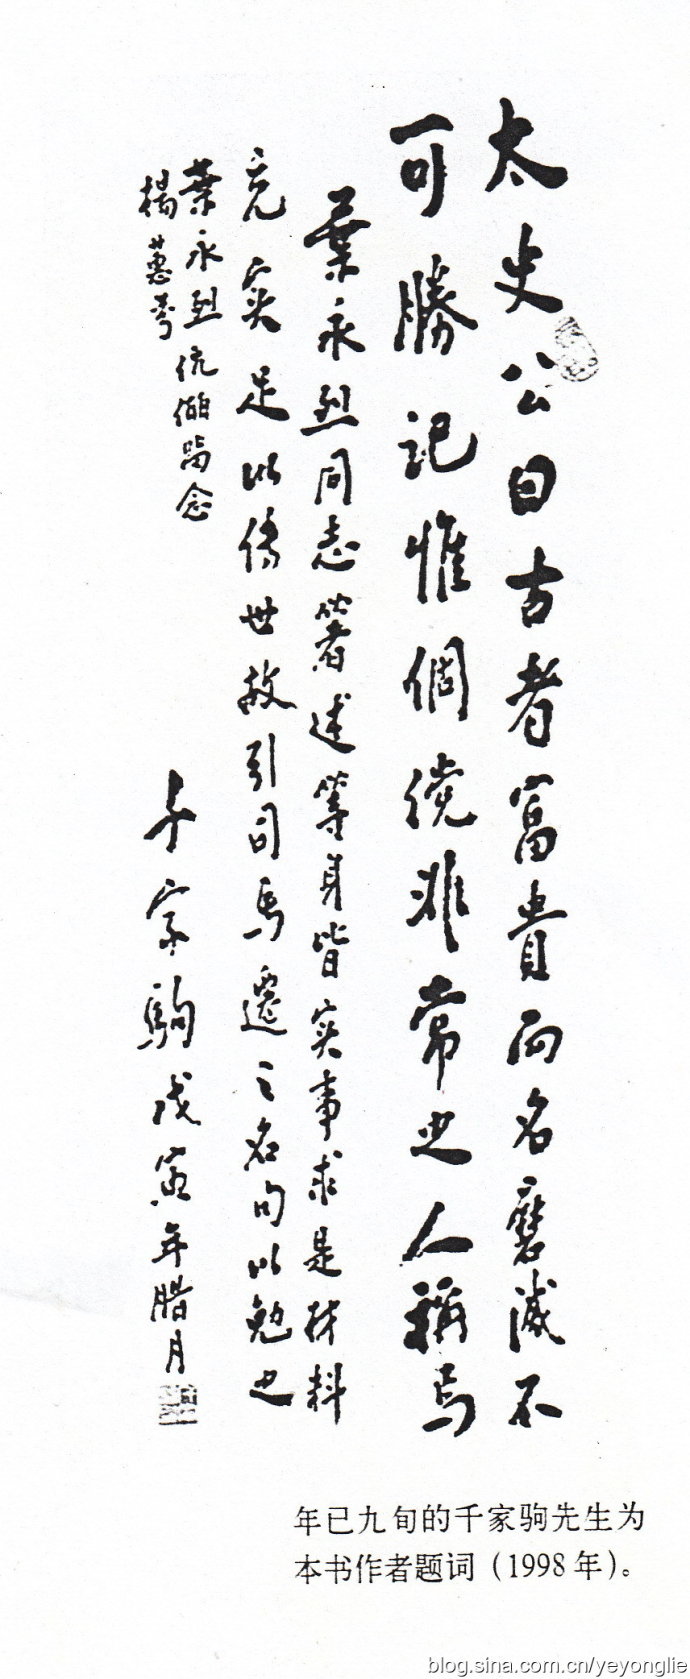 太史公曰古者富貴而名磨滅不
可勝記惟倜傥非常之人稱焉
葉永烈同志著述等身皆实事求是材料
充实足以傳世故引司馬遷之名句以勉之
葉永烈伉儷留念
楊蕙芬
千家駒戊寅年腊月
年已九旬的千家驹先生为
本书作者题词（1998年）。
blog.sina.com.cn/yeyonglie